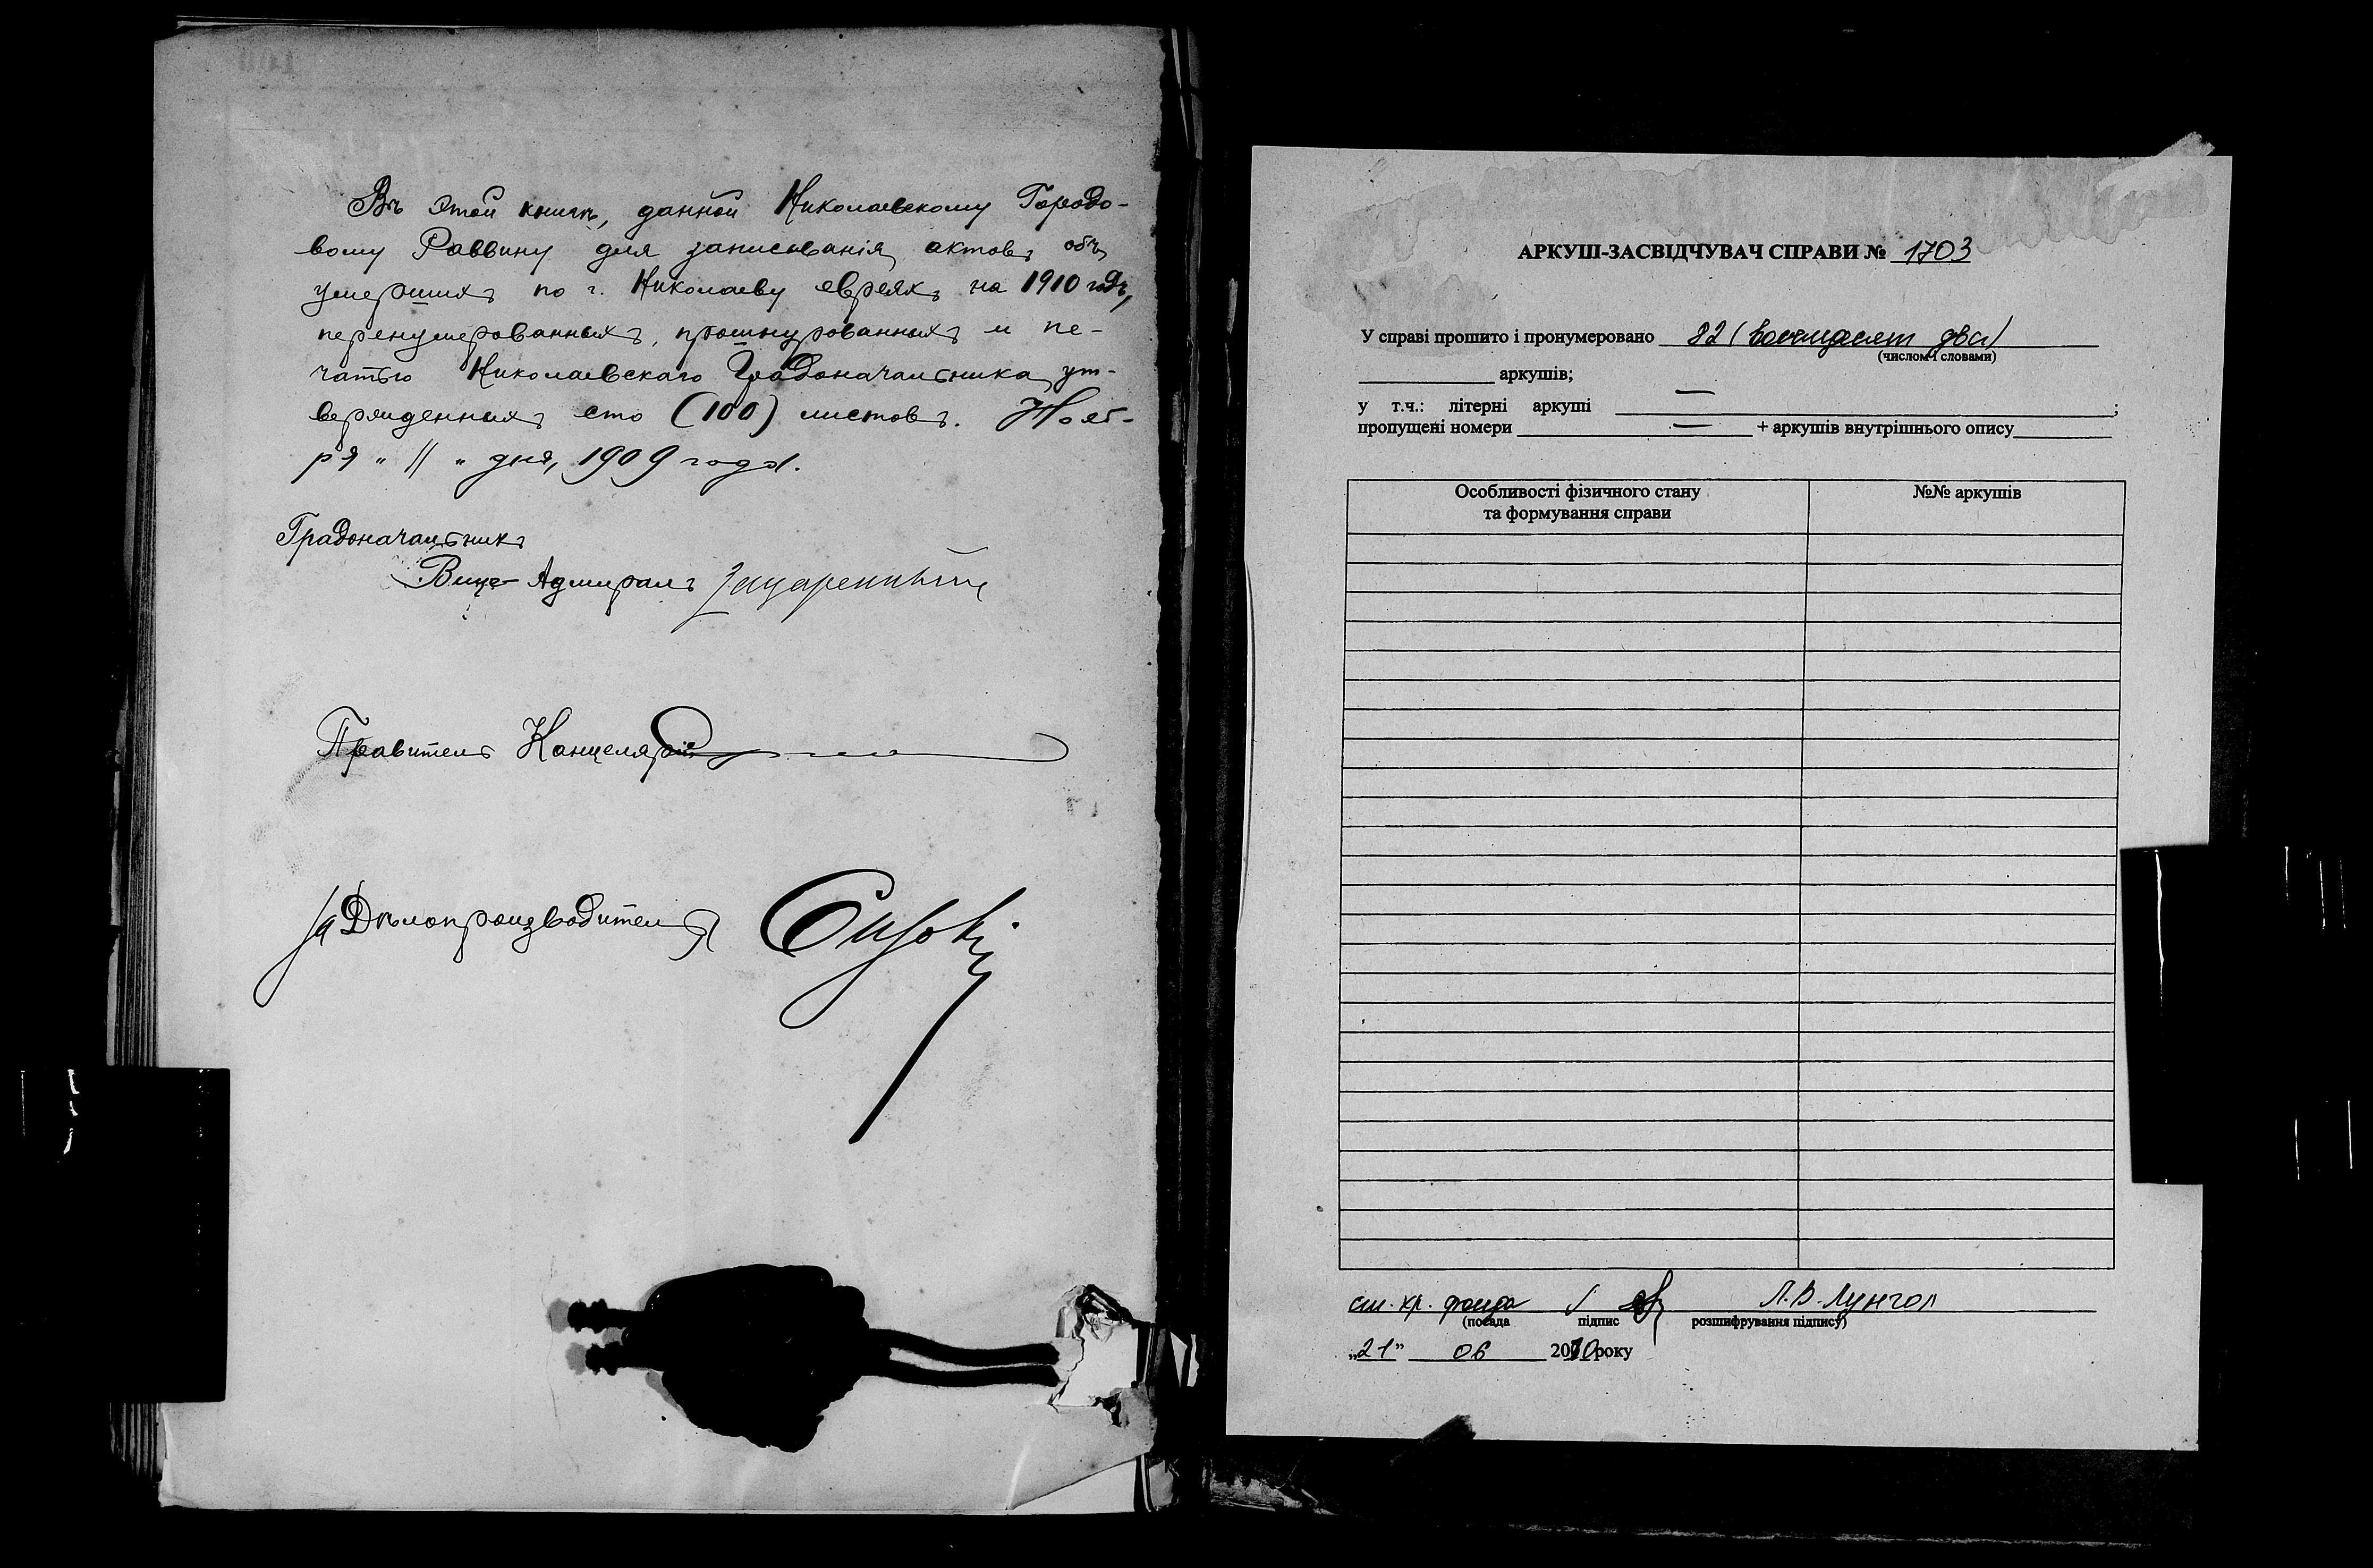 Въ этой книгѣ, данной Николаевскому Городо-
вому Раввину для записыванія актовъ объ
умершихъ по г. Николаеву евреяхъ на 1910 годъ,
перенумерованныхъ, прошнурованныхъ и пе-
чатью Николаевскаго Градоначальника ут-
вержденныхъ сто (100) листовъ. Нояб-
ря " 11 " дня, 1909 года.
Градоначальникъ
Вице-Адмиралъ
Правитель Канцеляріи
За Дѣлопроизводителя
АРКУШ-ЗАСВІДЧУВАЧ СПРАВИ № 1703
У справі прошито і пронумеровано 82 (восемдесят два)
(числом і словами)
аркушів;
у т.ч.: літерні аркуші — ;
пропущені номери — + аркушів внутрішнього опису
Особливості фізичного стану
та формування справи
№№ аркушів
ст. хр. фонда Л.В. Лунгол
(посада підпис розшифрування підпису)
„21” 06 2010 року